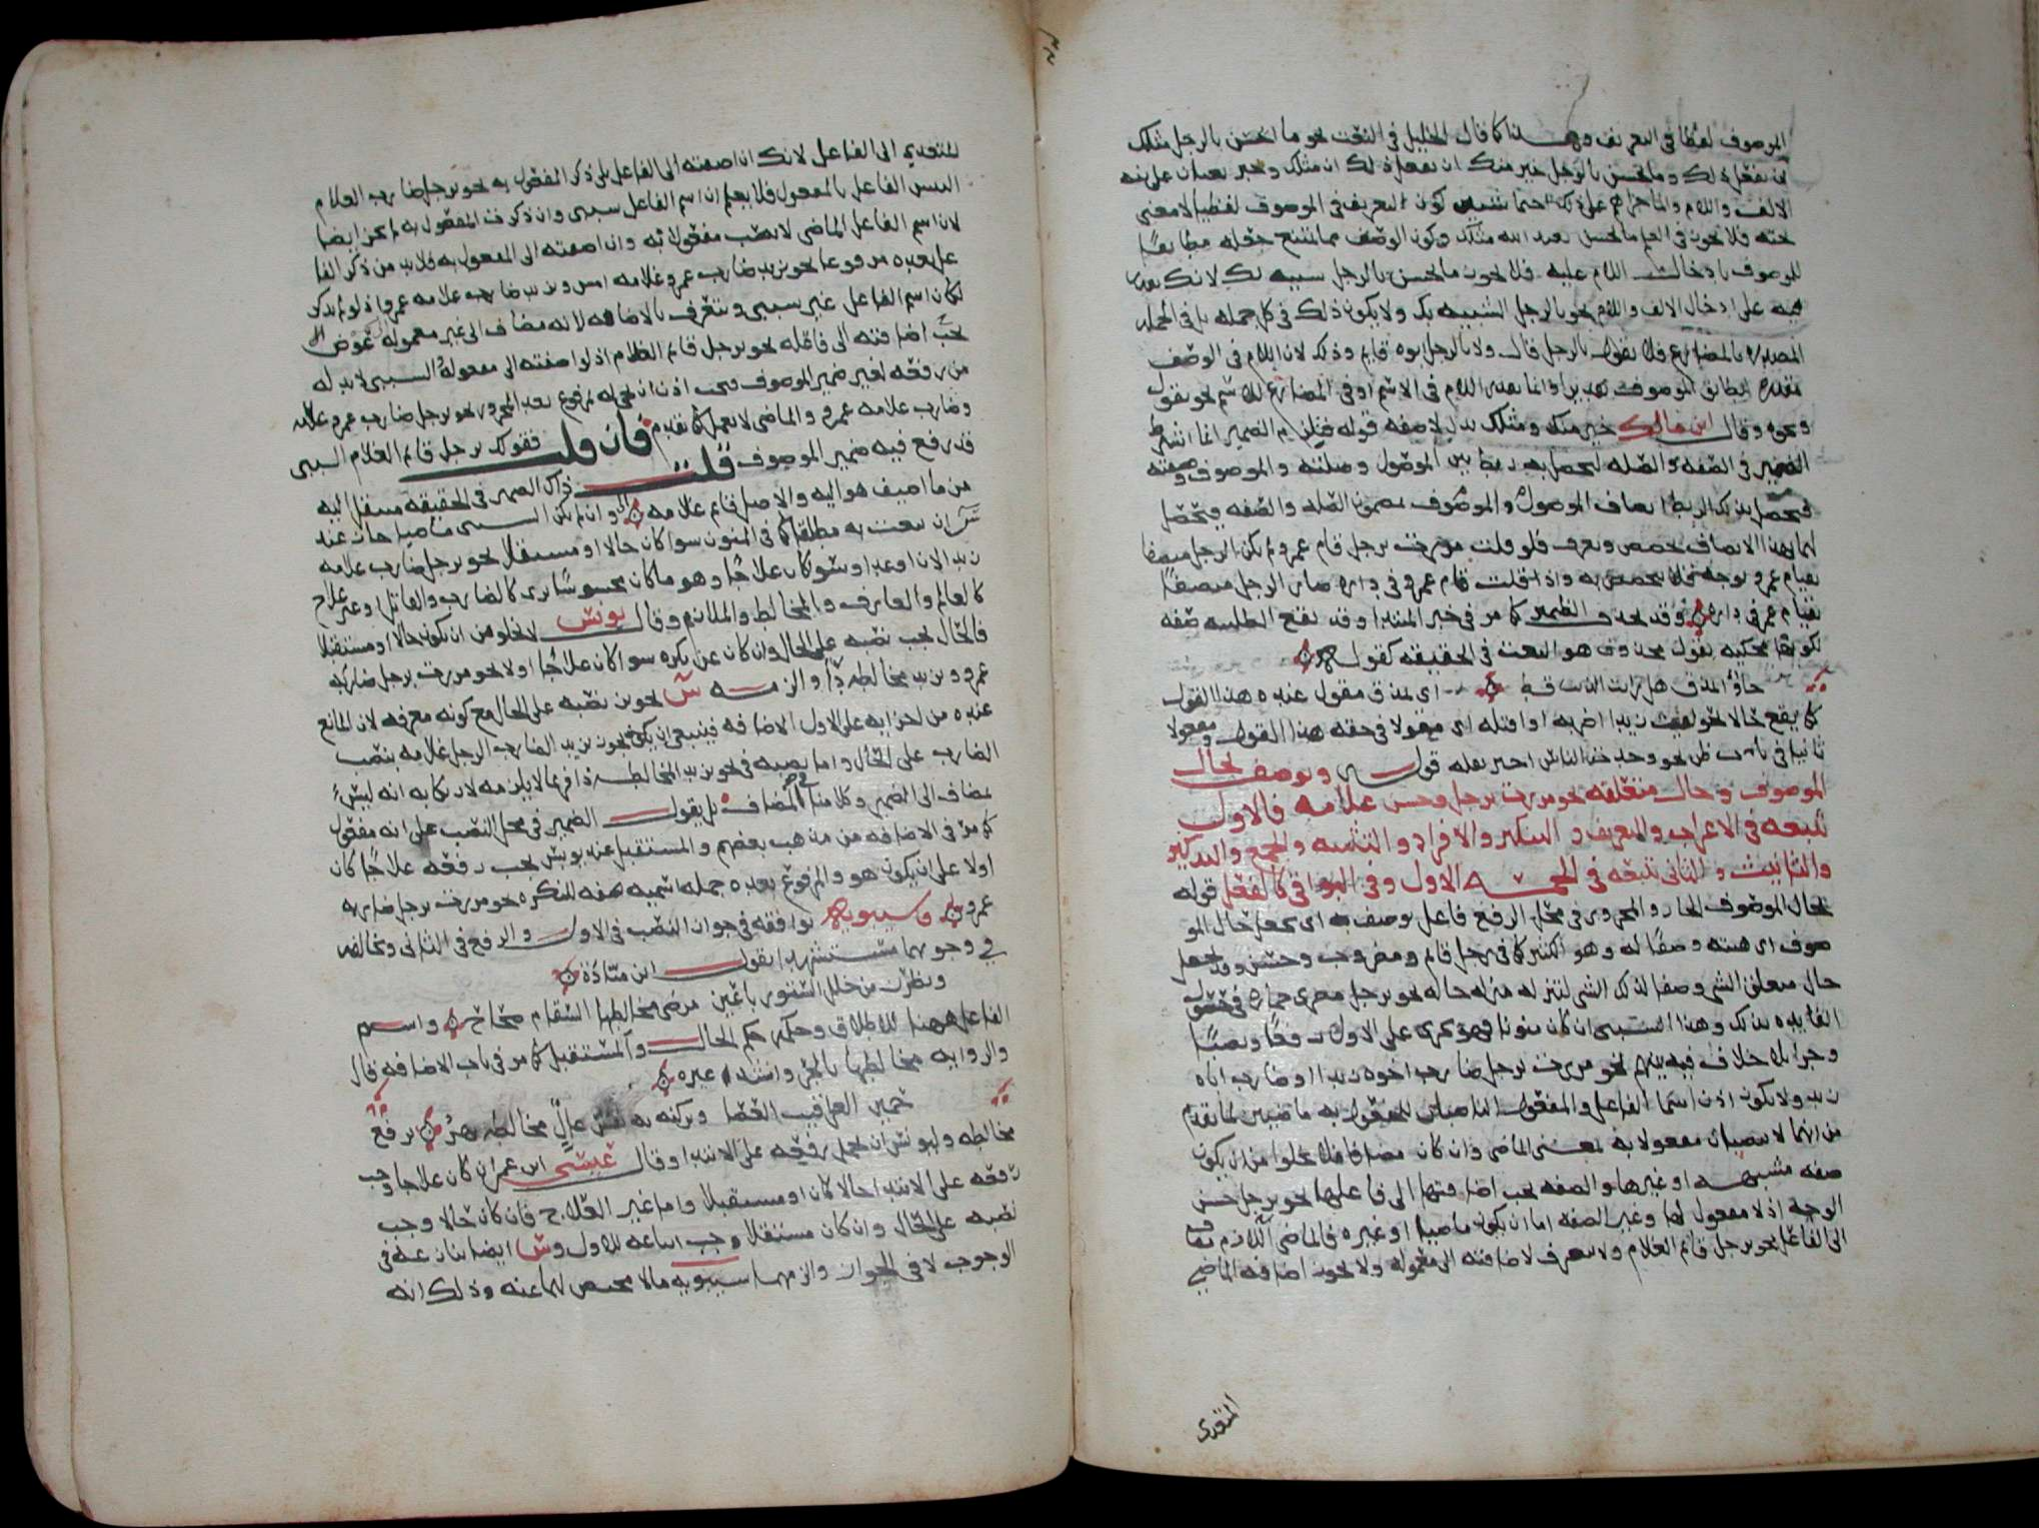 الموصوف لفظا في التعريف وهذا كما قال الخليل في النعت نحو ما يحسن بالرجل مثلك
ان يفعل ذلك وما يحسن بالرجل خير منك ان يفعل ذلك ان مثلك وخير نعتان على نية
الالف واللام وانما جراهم على ذلك اجتماع شيئين كون التعريف في الموصوف لفظيا لا معنى
تحته فلا يجوز في العلم ما يحسن بعبد الله مثلك وكون الوصف مما يمتنع جعله مطابقا
للموصوف بادخال اللام عليه فلا يجوز ما يحسن بالرجل شبيه لك لانك تقدر
فيه على ادخال الالف واللام نحو بالرجل الشبيه بك ولا يكون ذلك في كل جملة بل في الجملة
المصدرة بالمضارع فلا تقول بالرجل قال ولا بالرجل ابوه قايم وذلك لان اللام في الوصف
مقدرة ليطابق الموصوف تقديرا وانما تقدر اللام في الاسم او في المضارع للاسم نحو يقول
ونحوه وقال ابن مالك خير منك ومثلك بدل لا صفة قوله ويلزم الضمير انما اشترط
الضمير في الصفة والصلة ليحصل به ربط بين الموصول وصلته والموصوف وصفته
فيحصل بذلك الربط اتصاف الموصول والموصوف بمضمون الصلة والصفة ويحصل
لهما بهذا الاتصاف تخصص وتعرف فلو قلت مررت برجل قام عمرو لم يكن الرجل متصفا
بقيام عمرو بوجه فلا يتخصص به واذا قلت قام عمرو في داره صار الرجل متصفا
بقيام عمرو في داره وقد يحذف الضمير كما مر في خبر المبتدا وقد تقع الطلبية صفة
لكونها محكية بقول محذوف هو النعت في الحقيقة كقوله
جاؤا بمذق هل رايت الذيب قط اي بمذق مقول عنده هذا القول
كما يقع حالا نحو لقيت زيدا اضربه او اقتله اي مقولا في حقه هذا القول ومفعولا
ثانيا في باب ظن نحو وجدت الناس اخبر تقله قوله ويوصف بحال
الموصوف وحال متعلقه نحو مررت برجل حسن غلامه فالاول
يتبعه في الاعراب والتعريف والتنكير والافراد والتثنية والجمع والتذكير
والتانيث والثاني يتبعه في الخمسة الاول وفي البواقي كالفعل قوله
بحال الموصوف الجار والمجرور في محل الرفع فاعل يوصف به اي يجعل حال المو
صوف اي هيته وصفا له وهو الكثير كما في رجل قايم ومضروب وحسن وقد يجعل
حال متعلق الشي وصفا لذلك الشي لتنزله منزلة حاله نحو برجل مصري حماره في حصول
الفايدة بذلك وهذا السببي ان كان منونا فهو يجري على الاول رفعا ونصبا
وجرا بلا خلاف فيه بينهم نحو مررت برجل ضارب اخوه زيدا او ضارب اباه
زيد ولا يكون اذن اسما الفاعل والمفعول الناصبان للمفعول به ماضيين لما تقدم
من انهما لا ينصبان مفعولا به بمعنى الماضي وان كان مضافا فلا يخلو من ان يكون
صفة مشبهة او غيرها والصفة يجب اضافتها الى فاعلها نحو برجل حسن
الوجه اذ لا مفعول لها وغير الصفة اما ان يكون ماضيا او غيره فالماضي اللازم يضاف
الى الفاعل نحو برجل قايم الغلام ولا يتعرف لاضافته الى معموله ولا يجوز اضافة الماضي
المتعدي
المتعدي الى الفاعل لانك ان اضفته الى الفاعل بلا ذكر المفعول به نحو برجل ضارب الغلام
التبس الفاعل بالمفعول فلا يعلم ان اسم الفاعل سببي وان ذكرت المفعول به لم يجز ايضا
لان اسم الفاعل الماضي لا ينصب مفعولا به وان اضفته الى المفعول به فلا بد من ذكر الفا
عل بعده مرفوعا نحو بزيد ضارب عمرو غلامه امس وبزيد ضارب غلامه عمرو اذ لو لم يذكر
لكان اسم الفاعل غير سببي ويتعرف بالاضافة لانه مضاف الى غير معموله
يجب اضافته الى فاعله نحو برجل قايم الغلام اذ لو اضفته الى معموله السببي لا بد له
من رفعه لغير ضمير الموصوف
وضارب غلامه عمرو والماضي لا يعمل كما تقدم فان قلت فقولك برجل قايم الغلام السببي
قد رفع فيه ضمير الموصوف قلت ذاك الضمير في الحقيقة منتقل اليه
من ما اضيف هو اليه والاصل قايم غلامه وان لم يكن السببي ماضيا جاز عند
س ان ينعت به مطلقا كما في المنون سوا كان حالا او مستقبلا نحو برجل ضارب غلامه
زيد الان او غدا وسوا كان علاجا وهو ما كان محسوسا يرى كالضارب والقاتل او غير علاج
كالعالم والعارف والمخالط والملازم وقال يونس لا يخلو من ان يكون حالا او مستقبلا
فالحال يجب نصبه على الحال وان كان عن نكرة سوا كان علاجا او لا نحو مررت برجل ضاربه
عمرو وبزيد مخالطه داء والزمه س تجويز نصبه على الحال مع كونه معرفة لان المانع
عنده من اجرايه على الاول الاضافة فينبغي ان يكون يجوز بزيد الضارب الرجل غلامه بنصب
الضارب على الحال واما نصبه في نحو بزيد المخالطه داء فربما لا يلزمه لارتكابه انه ليس
مضاف الى الضمير وكلامنا في المضاف بل يقول الضمير في محل النصب على انه مفعول
كما مر في الاضافة من مذهب بعضهم والمستقبل عند يونس يجب رفعه علاجا كان
او لا على ان يكون هو والمرفوع بعده جملة اسمية صفة للنكرة نحو مررت برجل ضاربه
عمرو وسيبويه يوافقه في جواز النصب في الاول والرفع في الثاني ويخالفه
في وجوبهما مستشهدا بقول ابن ميادة
ونظرن من خلل الستور باعين مرضى مخالطها السقام صحاح واسم
الفاعل ههنا للاطلاق وحكمه حكم الحال والمستقبل كما مر في باب الاضافة قال
والرواية مخالطها بالجر وانشد غيره
حمين العراقيب العصا وتركنه به نفس عال مخالطه بهر برفع
مخالطه وليونس ان يحمل رفعه على الابتدا وقال عيسى ابن عمر ان كان علاجا وجب
رفعه على الابتدا حالا كان او مستقبلا واما غير العلاج فان كان حالا وجب
نصبه على الحال وان كان مستقبلا وجب اتباعه للاول وس ايضا ينازعه في
الوجوب لا في الجواز والزمهما سيبويه ما لا محيص لهما عنه وذلك انه